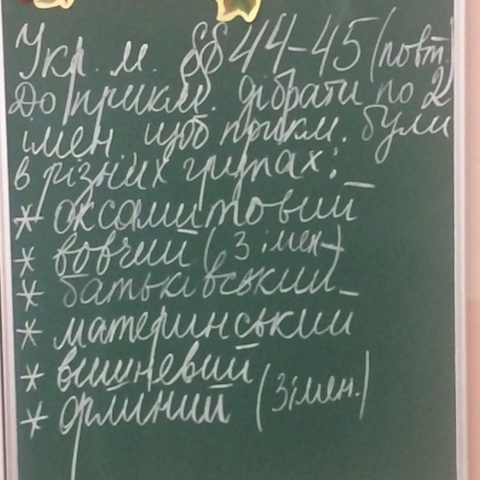 Укр. м. §§44-45 (повт.
До прикм. дібрати по 2
імен щоб прикм. були
в різних групах:
* оксамитовий
* вовчий (3 імен.)
* батьківський
* материнський
* вишневий
* орлиний (3 імен.)